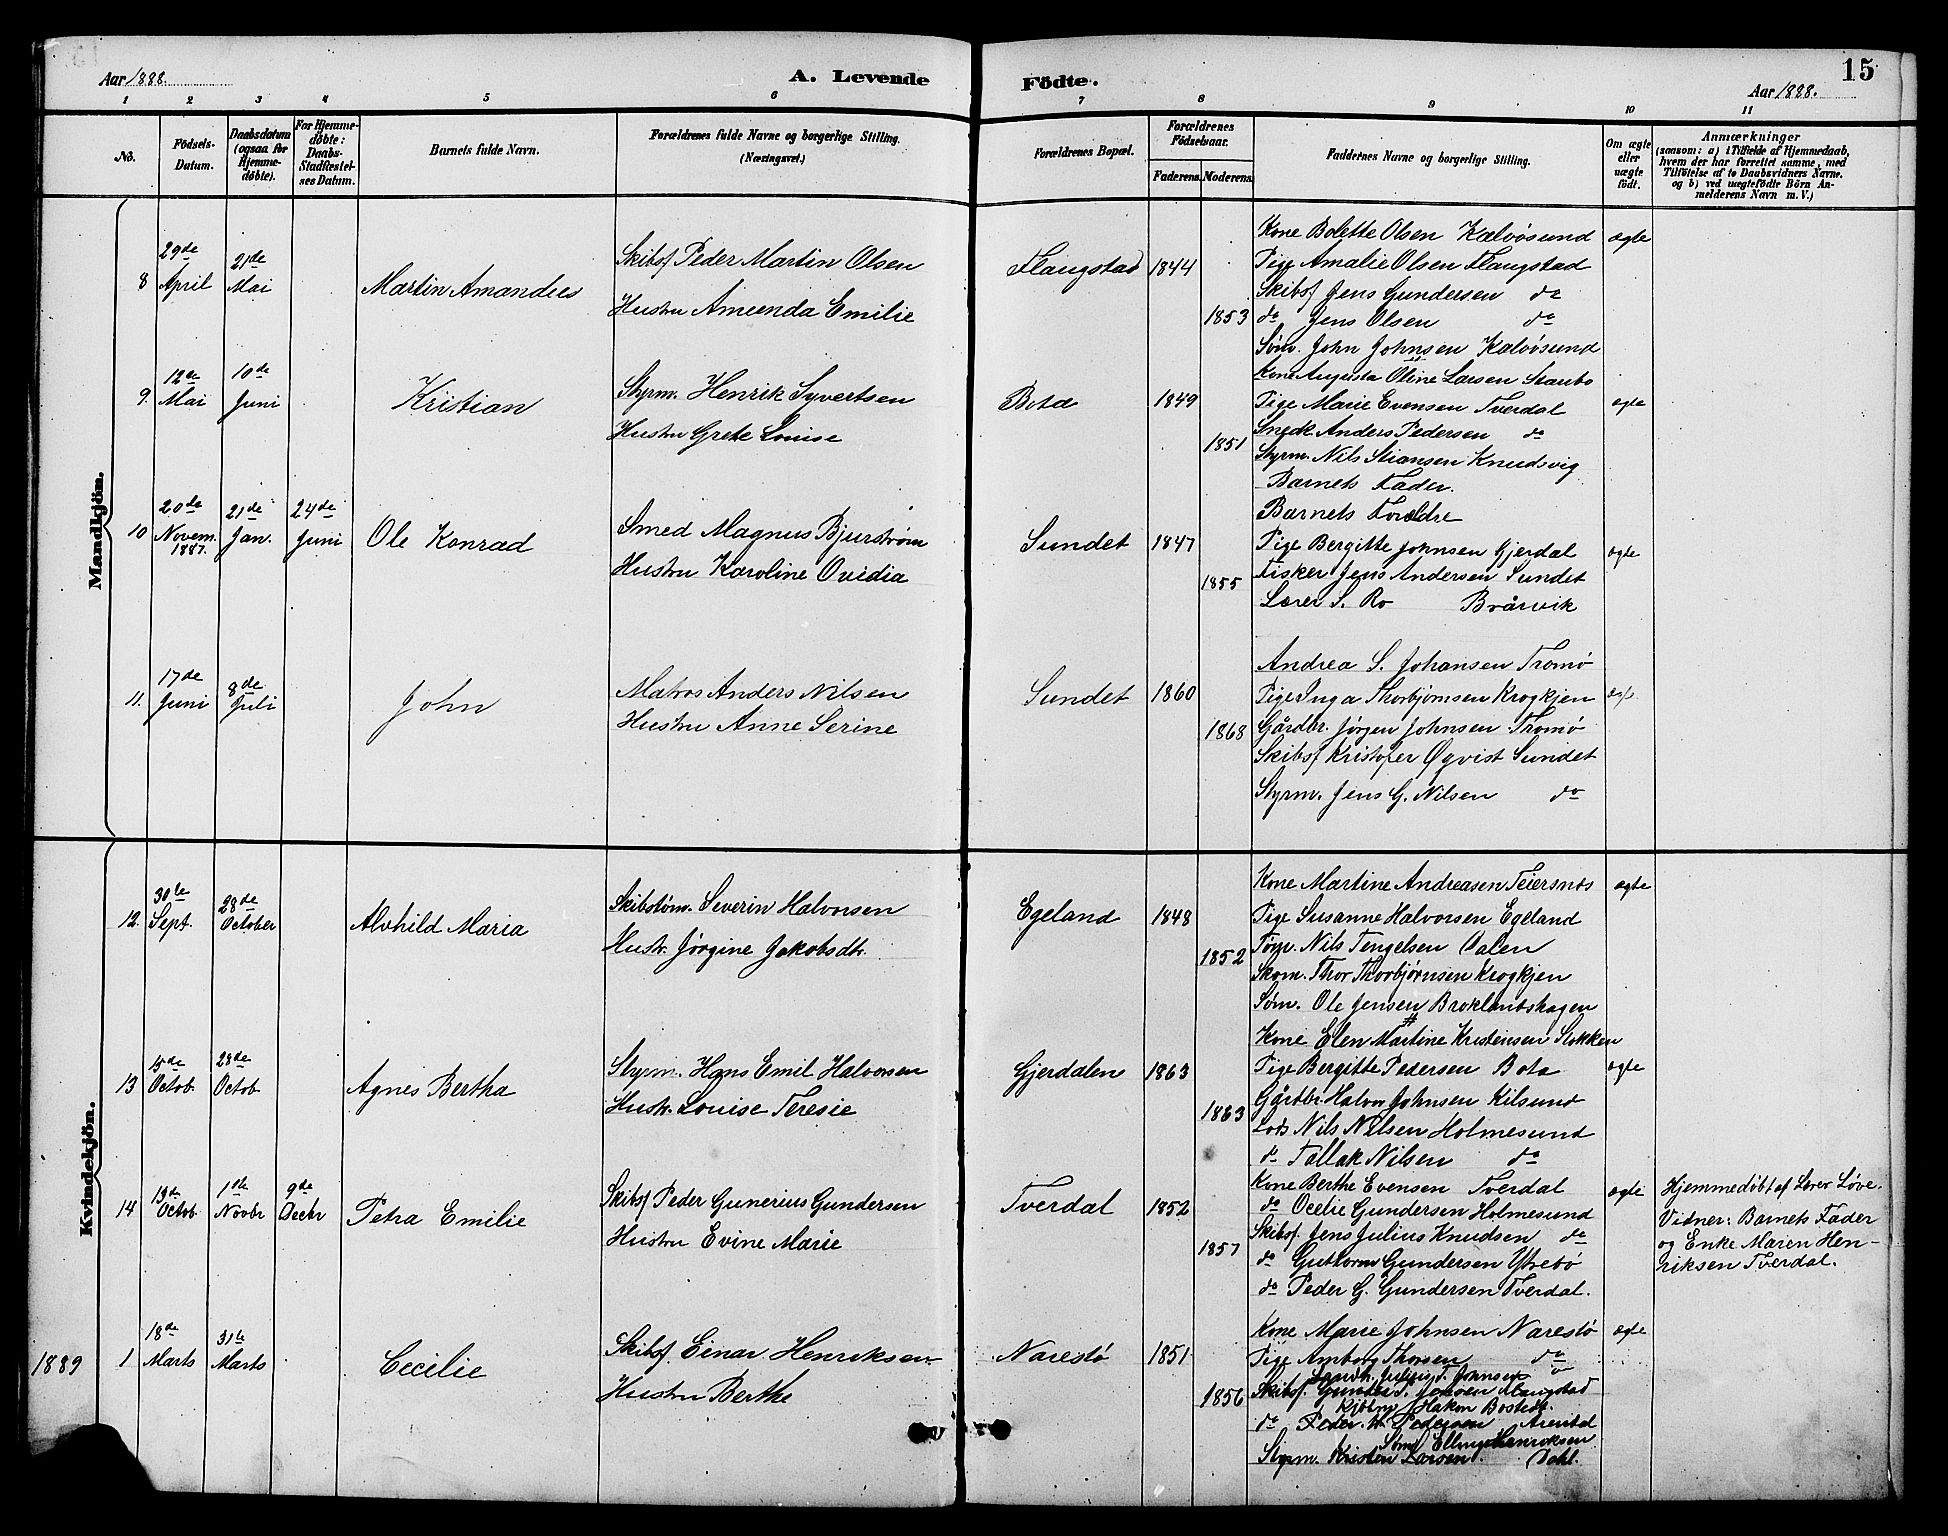 Aar 1888.
A. Levende
Födte.
15
Aar 1888.
1 2 3 4 5 6 7 8 9 10 11
No.
Födsels-Datum.
Daabsdatum (ogsaa for Hjemme-döbte).
For Hjemme-döbte: Daabs-Stadfæstel-ses Datum.
Barnets fulde Navn.
Forældrenes fulde Navne og borgerlige Stilling. (Næringsvei.)
Forældrenes Bopæl.
Forældrenes Födselsaar.
Faderens. Moderens.
Faddernes Navne og borgerlige Stilling.
Om ægte eller uægte født.
Anmærkninger
(saasom: a) i Tilfælde af Hjemmedaab,
hvem der har forrettet samme, med
Tilföielse af to Daabsvidners Navne,
og b) ved uægtefödte Börn An-
melderens Navn m. V.)
Mandkjön.
8
29de April
21de Mai
Martin Amandus
Skibsf Peder Martin Olsen
Hustru Amenda Emilie
Flangstad
1844
1853
Kone Bolette Olsen Kalvøsund
Pige Amalie Olsen Flangstad
Skibsf Jens Gundersen do
do Jens Olsen do
Søm. John Johnsen Kalvøsund
ægte
9.
12de Mai
10de Juni
Kristian
Styrm. Henrik Syvertsen
Hustru Grete Louise
Bota
1849
1851
Kone Augusta Oline Larsen Staubo
Pige Marie Evensen Tverdal
Snedk Anders Pedersen do
Styrm. Nils Stiansen Knudsvig
Barnets Fader.
ægte
10
20de Novem. 1887.
21de Jan.
24de Juni
Ole Konrad
Smed Magnus Bjurstrøm
Hustru Karoline Ovidia
Sundet
1847
1855
Barnets Forældre
Pige Bergitte Johnsen Gjerdal
Fisker Jens Andersen Sundet
Lærer S. Ro Bråvik
ægte
11.
17de Juni
8de Juli
John
Matros Anders Nilsen
Hustru Anne Serine
Sundet
1860
1868
Andrea S. Johansen Tromø
Pige Inga Thorbjørnsen Krogkjen
Gårdbr. Jørgen Johnsen Tromø
Skibsf Kristofer Øqvist Sundet
Styrm. Jens G. Nilsen do
Kvindekjön.
12.
30te Sept.
28de October
Alvhild Maria
Skibstøm. Severin Halvorsen
Hustr. Jørgine Jakobsdtr.
Egeland
1848
1852
Kone Martine Andreasen Teiersnes
Pige Susanne Halvorsen Egeland
Nils Tengelsen Dalen
Skom. Thor Thorbjørnsen Krogkjen
Søm. Ole Jensen Broklandshagen
ægte
13
15de Octob
28de Octob
Agnes Bertha
Styrm. Hans Emil Halvorsen
Hustr. Louise Teresie
Gjerdalen
1863
1863
Kone Elen Martine Kristensen Stokken
Pige Bergitte Pedersen Bota
Gårdbr Halvor Johnsen Kilsund
Lods Nils Nilsen Holmesund
do Tallak Nilsen do
ægte
14
13de Octob
1ste Novbr
9de Decbr
Petra Emilie
Skibsf Peder Gunerius Gundersen
Hustru Evine Marie
Tverdal
1852
1857
Kone Berthe Evensen Tverdal
do Ocelie Gundersen Holmesund
Skibsf. Jens Julius Knudsen do
do Guttorm Gundersen Ytrebø
do Peder G. Gundersen Tverdal.
ægte
Hjemmedøbt af Lærer Løve.
Vidner: Barnets Fader
og Enke Maren Hen-
riksen Tverdal.
1889
1
18de Marts
31te Marts
Cecilie
Skibsf. Einar Henriksen
Hustru Berthe
Narestø
1851
1856
Kone Marie Johnsen Narestø
Pige Amborg Thorsen do
Landh. Julius T. Johnsen
Skibsf. Jensen Flangstad
Kjøbm. Hakon Bostedt.
do Peder Pedersen Arendal
Søm Elling Henriksen
Styrm. Kristen Larsen. Dahl.
ægte